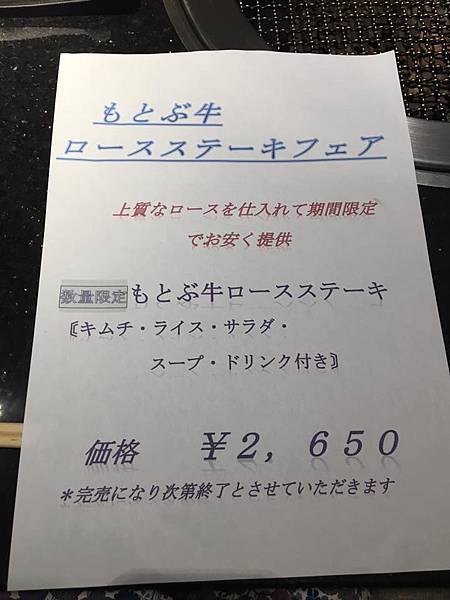 もとぶ牛
ロースステーキフェア
上質なロースを仕入れて期間限定
でお安く提供
数量限定もとぶ牛ロースステーキ
〘キムチ・ライス・サラダ・
スープ・ドリンク付き〙
価格 ￥２，６５０
＊完売になり次第終了とさせていただきます